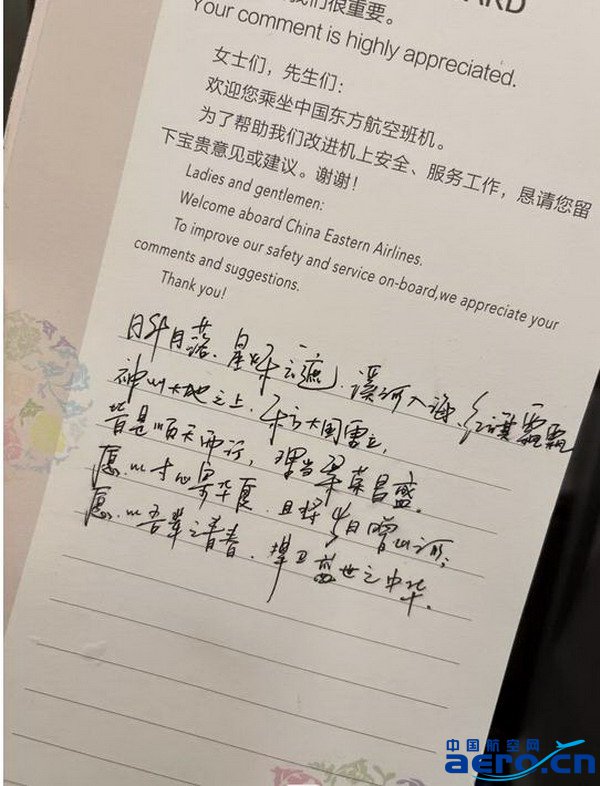 我们很重要。
ARD
Your comment is highly appreciated.
女士们，先生们：
欢迎您乘坐中国东方航空班机。
为了帮助我们改进机上安全、服务工作，恳请您留
下宝贵意见或建议。谢谢！
Ladies and gentlemen:
Welcome aboard China Eastern Airlines.
To improve our safety and service on-board,we appreciate your
comments and suggestions.
Thank you!
日升月落、星 云遮、溪河入海、
神州大地之上、东方大国雷立，
皆是顺天而行，理当 荣昌盛。
愿以寸心寄华夏、且将岁月赠山河；
愿以吾辈之青春、捍卫盛世之中华。
中国航空网
aero.cn